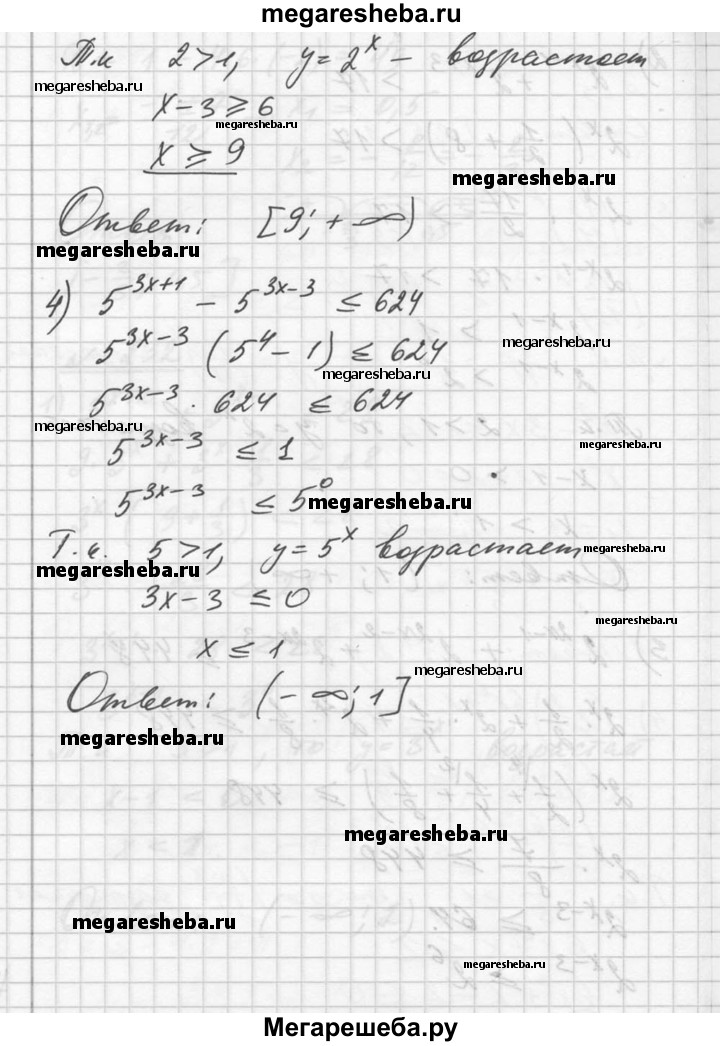 megaresheba.ru
Т.к 2>1, y=2^x – возрастает
megaresheba.ru
x-3 ≥ 6
megaresheba.ru
x ≥ 9
megaresheba.ru
Ответ: [9; +∞)
megaresheba.ru
4) 5^{3x+1} - 5^{3x-3} ≤ 624
megaresheba.ru
5^{3x-3} (5^4 - 1) ≤ 624
megaresheba.ru
5^{3x-3} · 624 ≤ 624
megaresheba.ru
5^{3x-3} ≤ 1
megaresheba.ru
5^{3x-3} ≤ 5^0
megaresheba.ru
Т.к. 5>1, y=5^x возрастает
megaresheba.ru
megaresheba.ru
3x-3 ≤ 0
megaresheba.ru
x ≤ 1
megaresheba.ru
Ответ: (-∞; 1]
megaresheba.ru
megaresheba.ru
megaresheba.ru
megaresheba.ru
Мегарешеба.ру